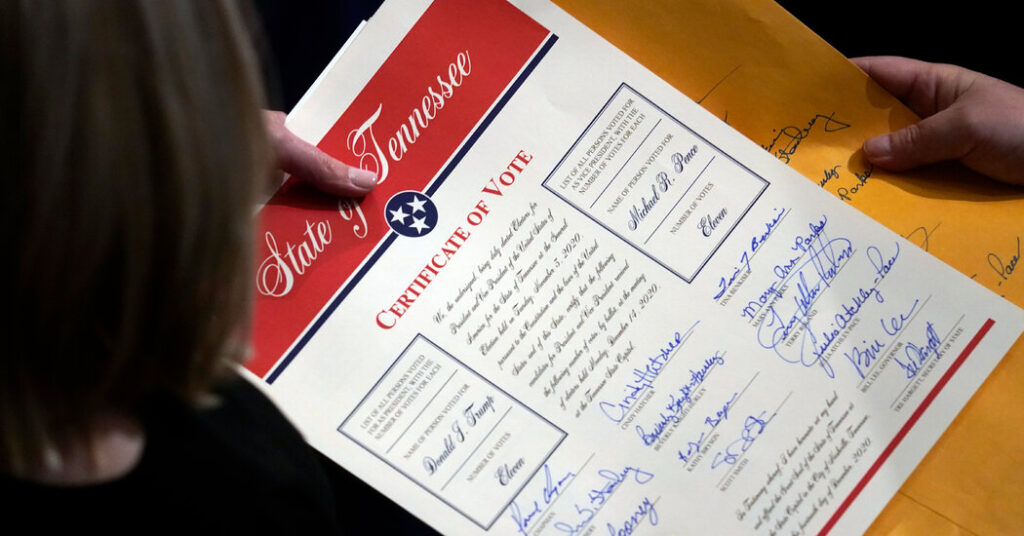 State of Tennessee
CERTIFICATE OF VOTE
We, the undersigned, being duly elected Electors for
President and Vice President of the United States of
America for the State of Tennessee at the General
Election held on Tuesday, November 3, 2020,
pursuant to the Constitution and the laws of the United
States and of this State, certify that the following
candidates for President and Vice President received
the following number of votes by ballot at the meeting
of electors held Monday, December 14, 2020, at
the Tennessee State Capitol.
LIST OF ALL PERSONS VOTED
FOR AS PRESIDENT, WITH THE
NUMBER OF VOTES FOR EACH
NAME OF PERSON VOTED FOR
Donald J. Trump
NUMBER OF VOTES
Eleven
LIST OF ALL PERSONS VOTED FOR
AS VICE PRESIDENT, WITH THE
NUMBER OF VOTES FOR EACH
NAME OF PERSON VOTED FOR
Michael R. Pence
NUMBER OF VOTES
Eleven
Cindy Hatcher
CINDY HATCHER
KATHY BRYSON
SCOTT SMITH
Tina T Benkiser
TINA BENKISER
Mary Ann Parks
TERRY
Julia Atchley-Pace
Bill Lee
BILL LEE, GOVERNOR
TRE HARGETT, SECRETARY OF STATE
In Testimony whereof, I have hereunto set my hand
and affixed the Great Seal of the State of Tennessee
State Capitol in the City of Nashville, Tennessee
fourteenth day of December, 2020.
Parks
Pace